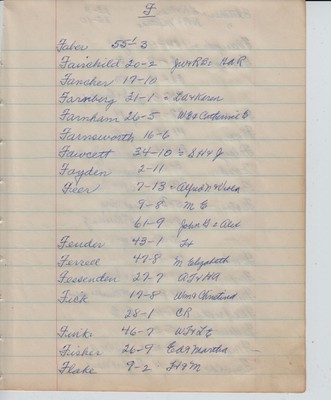 F
Faber 55-3
Fairchild 20-2 JW+RE: HAR
Fancher 17-10
Farnberg 31-1 = La+Keren
Farnham 26-5 W.E.+Catherine E
Farnsworth 16-6
Fawcett 34-10 = SH+J
Fayden 2-11
Feer 7-13 = Alfred N+Viola
9-8 M E
61-9 John G + Alex
Fender 43-1
Ferrel 47-8 M Elizabeth
Fessenden 27-7 AJ+HA
Fick 17-8 Wm+Christina
28-1 CR
Fink 46-7
Fisher 26-9 Ed+Martha
Flake 9-2